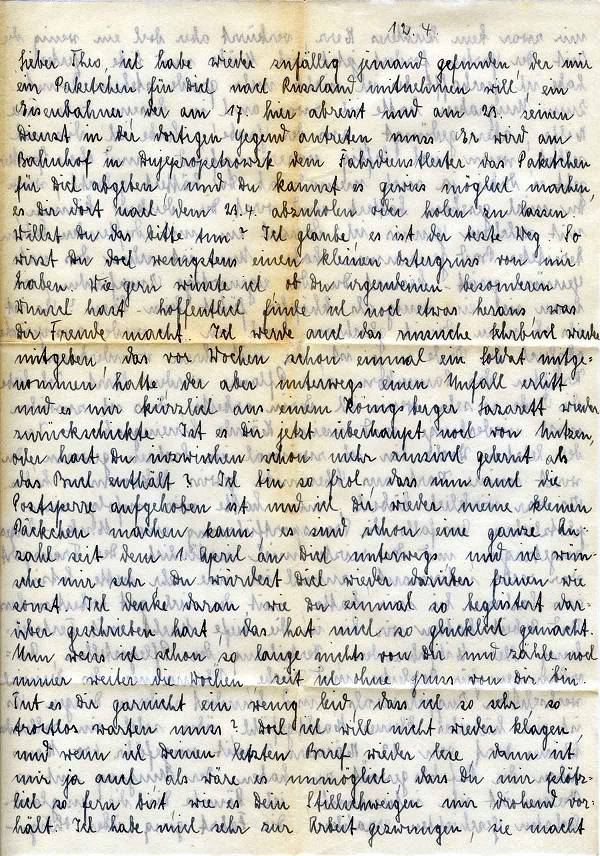 12.4.
Lieber Theo, ich habe wieder zufällig jemand gefunden, der mir
ein Paketchen für Dich nach Russland mitnehmen will, ein
Eisenbahner, der am 17. hier abreist und am 23. seinen
Dienst in der dortigen Gegend antreten muss. Er wird am
Bahnhof in Dnjepropetrowsk dem Fahrdienstleiter das Paketchen
für Dich abgeben, und Du kannst es gewiss möglich machen,
es Dir dort nach dem 23.4. abzuholen oder holen zu lassen.
Willst Du das bitte tun? Ich glaube, es ist der beste Weg. So
wirst Du doch wenigstens einen kleinen Ostergruss von mir
haben. Wie gern wüsste ich, ob Du irgendeinen besonderen
Wunsch hast - hoffentlich finde ich noch etwas heraus was
Dir Freude macht. Ich werde auch das russische Lehrbuch wieder
mitgeben, das vor Wochen schon einmal ein Soldat mitge-
nommen hatte, der aber unterwegs einen Unfall erlitt
und es mir kürzlich aus einem Königsberger Lazarett wieder
zurückschickte. Ist es Dir jetzt überhaupt noch von Nutzen,
oder hast Du inzwischen schon mehr russisch gelernt als
das Buch enthält? Ich bin so froh, dass nun auch die
Postsperre aufgehoben ist und ich Dir wieder meine kleinen
Päckchen machen kann, es sind schon eine ganze An-
zahl seit dem 1. April an Dich unterwegs, und ich wün-
sche mir sehr, Du würdest Dich wieder darüber freuen wie
sonst. Ich denke daran, wie Du einmal so begeistert dar-
über geschrieben hast, das hat mich so glücklich gemacht.
Nun weiss ich schon so lange nichts von Dir und zähle noch
immer weiter die Wochen, seit ich ohne Gruss von Dir bin.
Tut es Dir garnicht ein wenig leid, dass ich so sehr so
trostlos warten muss? Doch ich will nicht wieder klagen,
und wenn ich Deinen letzten Brief wieder lese, dann ist
mir ja auch, als wäre es unmöglich, dass Du mir plötz-
lich so fern bist, wie es Dein Stillschweigen mir drohend vor-
hält. Ich habe mich sehr zur Arbeit gezwungen, sie macht